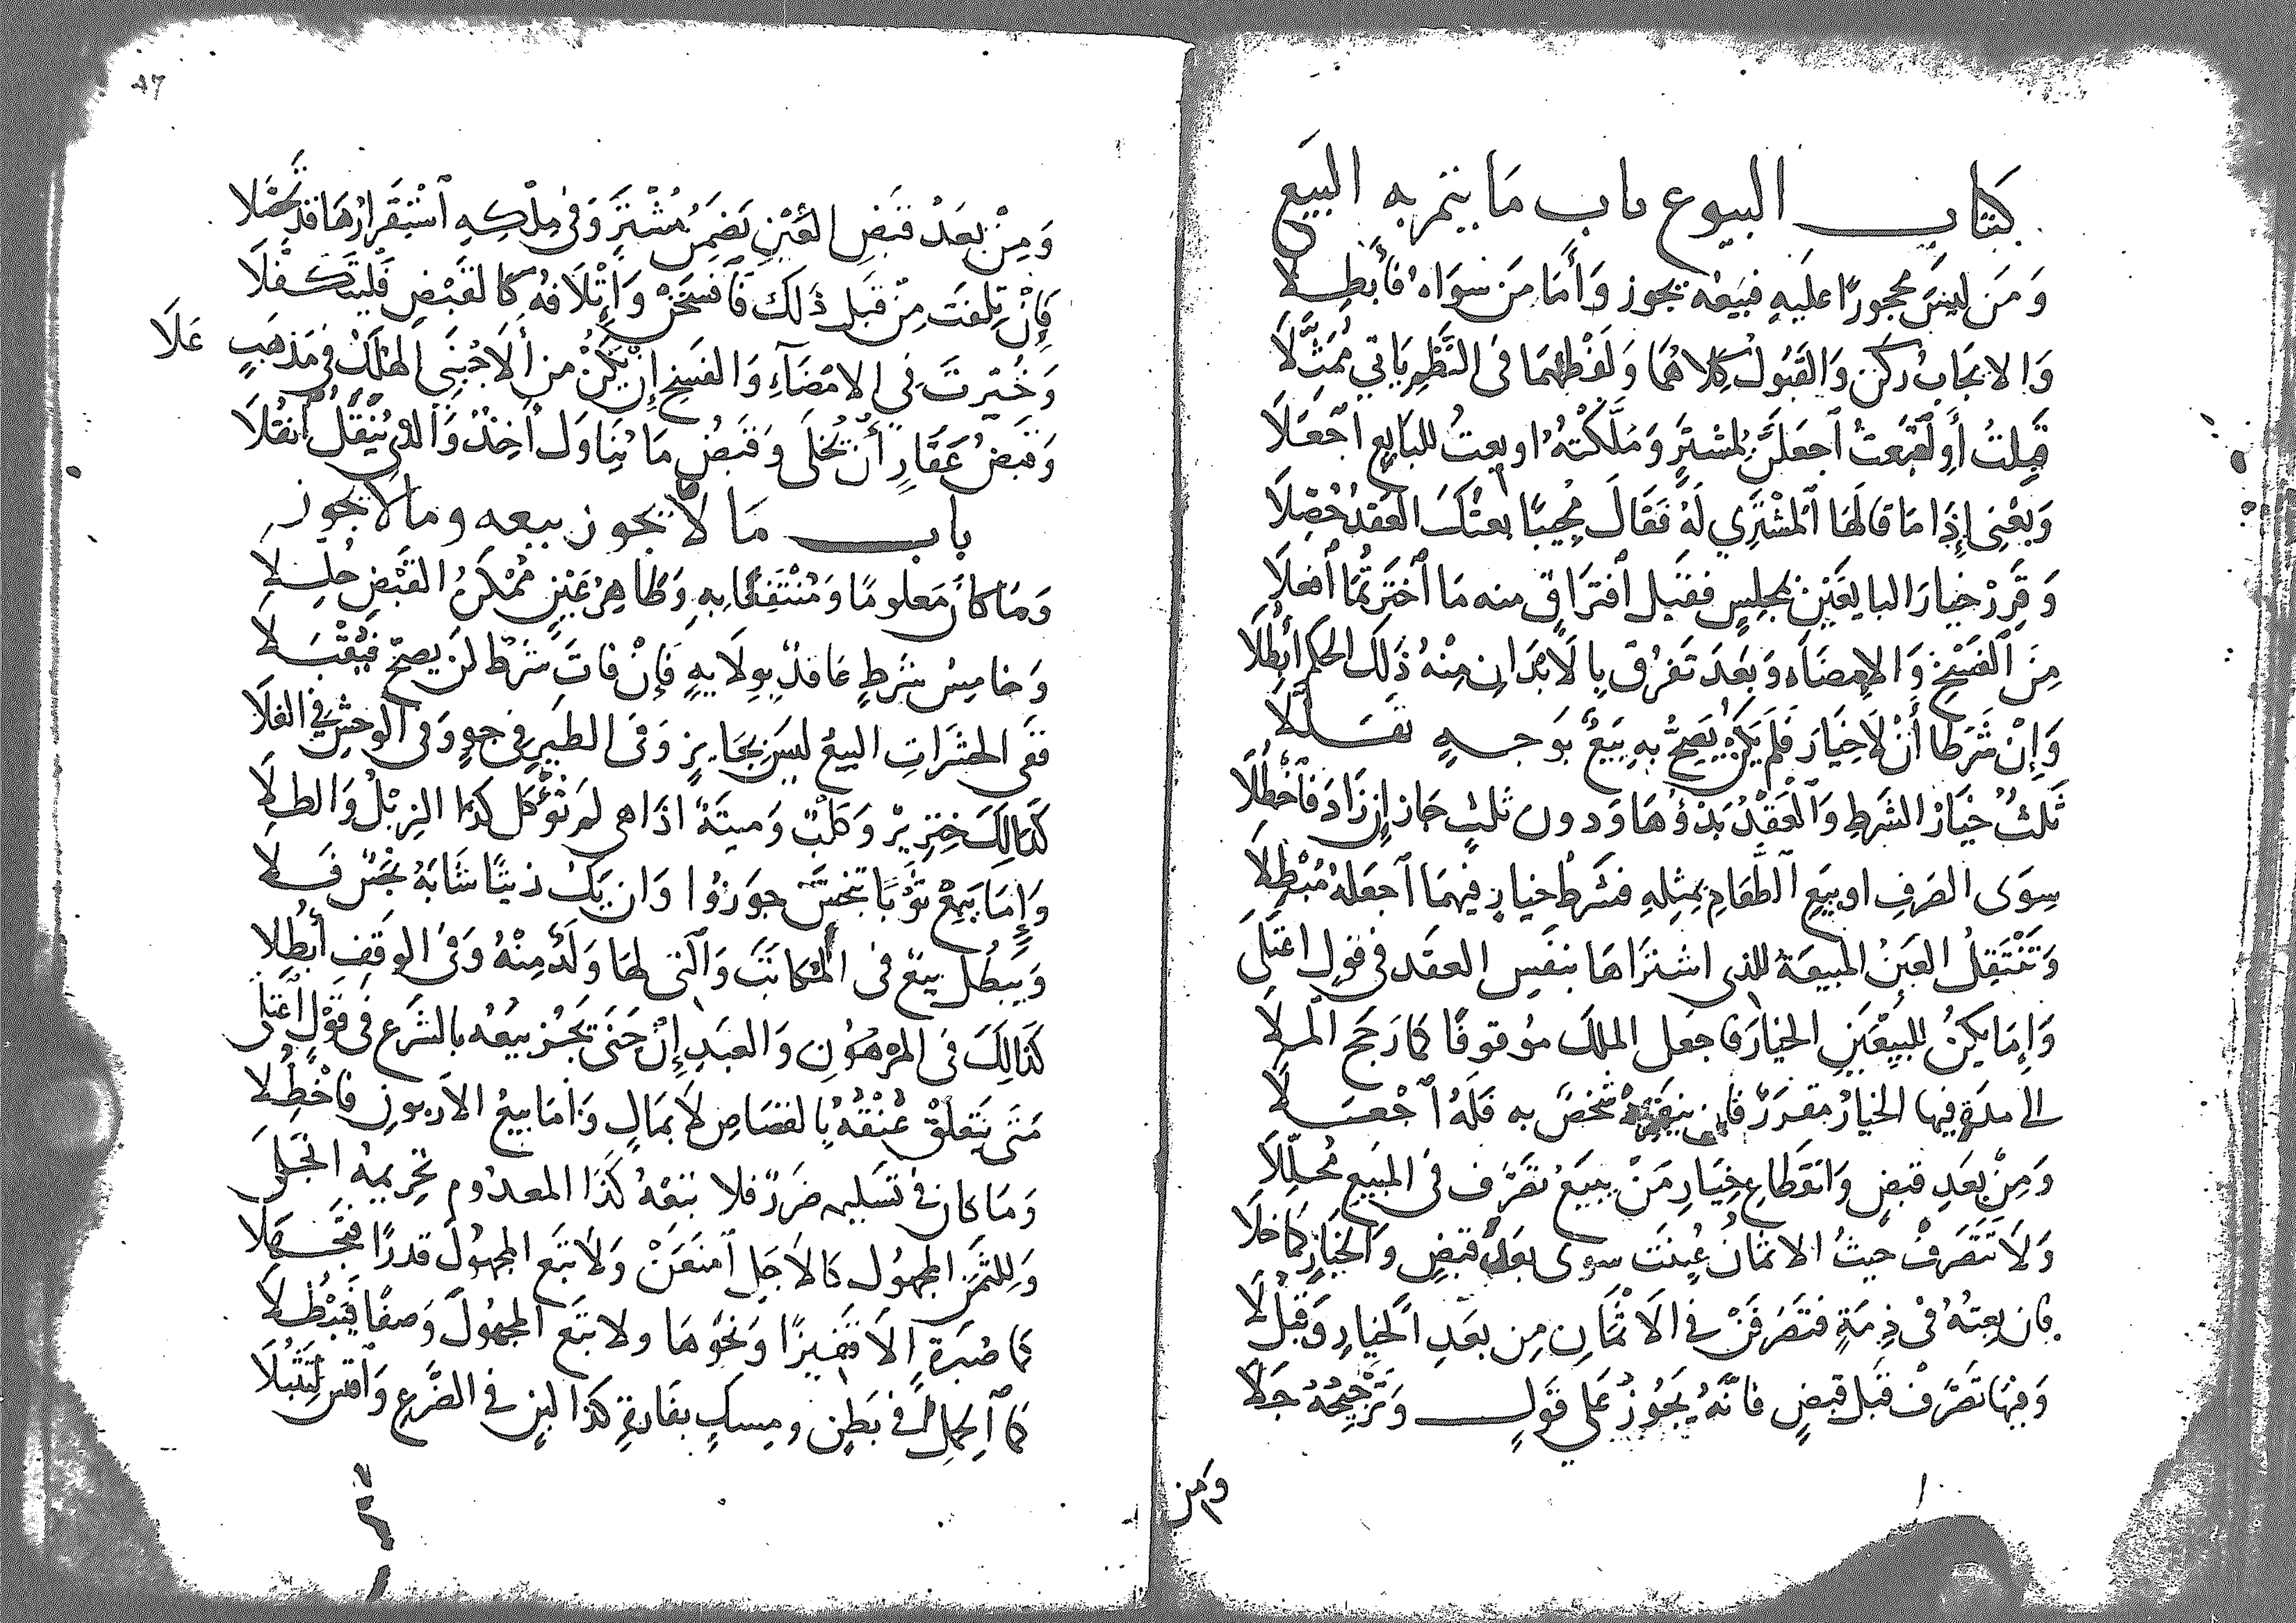 كتاب البيوع باب ما يتم به البيع
وَمَن لَيسَ محجورًا عليَهِ فبيَعهُ يجوز وَأَمَا مَن سوَاهُ فأبطِلا
وَالايجَابُ ركن وَالقَبُولُ كِلاهُمَا وَلَفظهُمَا فى النَّظمِ يَاتي مُمَثَّلَا
قبِلتُ أَو ابتَعتُ اجعَلَن لمشترٍ وَمَلَّكتهُ او بعتُ للبَايع اجعَلَا
وَبعْنِى إِذَا مَا قالهَا المشتَرِي لَهُ فَقَالَ مجِيبًا بعتكَ العَقدُ حُصِّلَا
وَقَرِرْ خيارَ البايعَيْنِ بمجلِسٍ فقبَل افترَاقٍ منه مَا اختَرتُمَا افعلَا
مِنَ الفَسْخِ وَالامضَاء وَبعَدَ تَفَرُقٍ بِالابدَانِ مِنْهُ ذَلِكَ الحكم أبطُلَا
وَإِنْ شَرَطَا أَنْ لَا خِيَارَ فَلَم يكن يَصِحُّ بهِ بَيعٌ بوَجهٍ تقَبَّلَا
ثَلثٌ خيَارُ الشرطِ وَالعَقدُ بَدْؤُهَا وَدون ثلثٍ جاز إِن زَادَ فَاحظُلَا
سِوَى الصَرفِ او بيَعِ الطَّعَامِ بمِثلِهِ فشَرطُ خيارٍ فيهمَا اجعَلهُ مُبْطِلَا
وَتَنْتَقِلُ العَينُ المبيعَةُ للذى اشترَاهَا بنفَسِ العقَد فى قولٍ اعتَلَى
وَإِمَا يكنُ للبَيِّعَينِ الخيارُ فاجعل الملكَ موُقوفًا كمارَجحَ الملَا
الى مدَةٍ فيها الخيارُ مقدرٌ فان ينفرِدْ شخصٌ به فلَهُ اجْعَلَا
وَمِنْ بعَدِ قبضٍ وَانقَطَاعِ خِيَارِ مَنْ يبيَعُ تصَرّف فى المبَيعِ مُحَلِّلَا
وَلَا تَتَصَرفْ حيثُ الاثمَانُ عُينَت سوى بعَدَ قبَضٍ والخيَارِ كمَا خلَا
فان بعِتهُ فى ذِمَةٍ فتصَرفَنْ في الاَثْمَانِ مِن بعَدِ الخيَارِ وَقَبْلَا
وَفيهَا تصَرّفْ قبَل قبَضٍ فانَّهُ يَجُوزُ عَلى قوَلٍ وَتَرْجِيحُهُ جَلَا
وَمن
وَمِنْ بعَدْ قبَضِ العَيْنِ يَضمَنُ مُشْتَرٍ وَفى مِلْكِهِ اسْتِقرَارُهَا قد تحَصَّلا
فإِنْ تلفَت مِن قبَلِ ذَلكَ فَافسَخَنْ وَإِتْلَافهُ كَالقَبْضِ فَليتكَفَّلَا
وَخُيّرتَ في الامضَآءِ وَالفسَخِ إِن يكُنْ من الاجْنَبِى الهلكُ فى مَذهَبٍ عَلَا
وَقبَضُ عَقَارٍ أَن يُخَلَى وَقبَضُ مَا يُنَاوَل أَخذٌ وَالذى يُنقَلُ انقُلَا
باب ما لا يجوز بيعه وما لا يجوز
وَمَا كانَ مَعلومًا وَمُنتَفَعًا بِهِ وَطَاهِرُ عَيْنٍ مُمْكنُ القَبْضِ حُلِّلَا
وَخامِسُ شرطٍ عَاقدٌ بوِلَايةٍ فَإِنْ فاتَ شرَطٌ لَنْ يَصحّ فَيُقْبَلَا
ففى الحشَرَاتِ البيَعُ ليسَ بجَايزٍ وَفى الطَيرِ فى جوٍ وَفى الوَحشِ في الفَلَا
كَذَالِكَ خِنزِيرٌ وَكلبٌ وَميتَةٌ اذَا هى لم تؤكل كذَا الزِبْلُ وَالطِلَا
وَإِمَا يبَعْ ثوْبًا تنجّسَ جوزُوا وَان يَكُ زيتًا شَابَهُ نجَسٌ فَلَا
وَيبطُل بيَعٌ فى المكاتَب وَالتى لها وَلَدٌ مِنْهُ وَفى الوقفِ أبطُلا
كَذَالِكَ فى المرْهُونِ وَالعبَدِ إِن جَنَى تَجُز بيَعُه بالشَرع فى قَوْلٍ اعْتَلَى
مَتى يتَعلقْ عُنْقهُ بِالقصَاصِ لاَ بمَالٍ وَأمَا بيعُ الاربوزِ فاحْظُلَا
وَمَا كان فى تسَليمهِ ضرَرٌ فلا تبعْهُ كَذَا المعدُوم تحرِيمهُ انجَلَى
وَللثمَنِ المجهُول كالاَجَلِ امنَعَنْ وَلَا تبَع المجهُولَ قدرًا فتَجهَلَا
كمَا صُبرَةٍ الاَ قَفيزًا وَنحَوهَا ولا تبَع المجهُولَ وَصفًا فَيَبْطُلَا
كمَا الحمَلُ فى بَطنٍ ومِسكٍ بفَارةٍ كَذَا لبنٍ في الضَّرعِ وَاقس لتنبُلَا